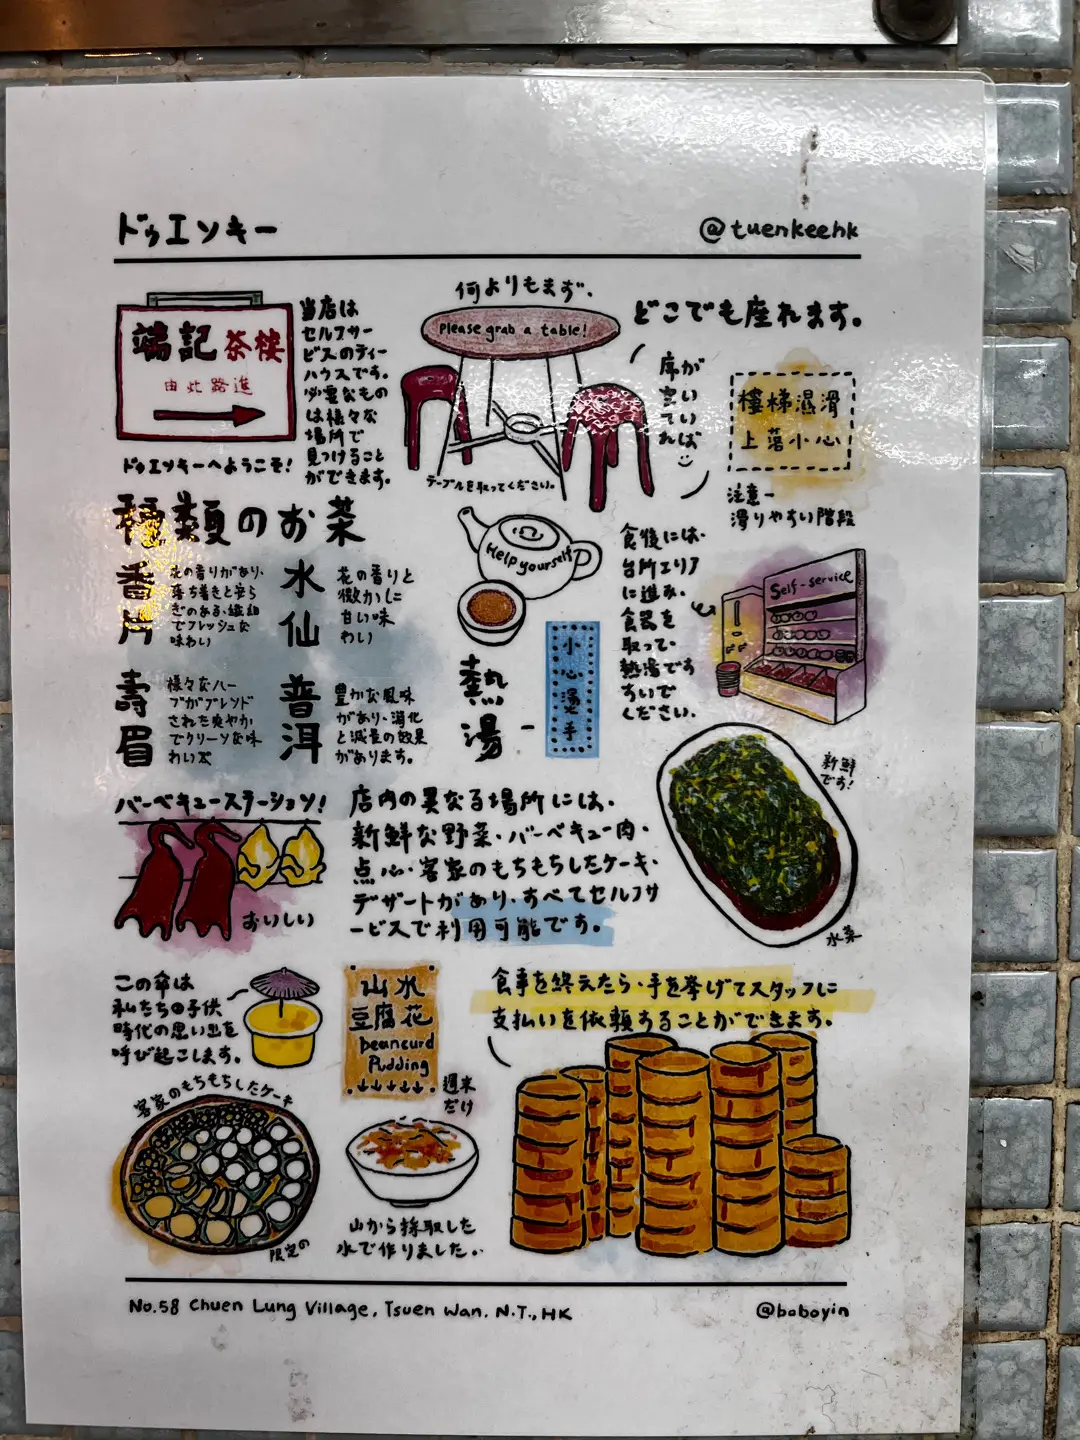 ドゥエンキー
@tuenkeehk
端記茶樓
由此路進
ドゥエンキーへようこそ!
当店は
セルフサー
ビスのティー
ハウスです。
必要なもの
は様々な
場所で
見つけること
ができます。
何よりもまず、
Please grab a table!
テーブルを取ってください。
どこでも座れます。
席が
空いて
いれば
樓梯濕滑
上落小心
注意ー
滑りやすい階段
種類のお茶
香片
花の香りがあり、
落ち着きと安ら
ぎのある、繊細
でフレッシュな
味わい
水仙
花の香りと
微かに
甘い味
わい
壽眉
様々なハー
ブがブレンド
された爽やか
でクリーンな味
わい
普洱
豊かな風味
があり、消化
と減量の効果
があります。
Help yourself
熱湯
小心燙手
食後には、
台所エリア
に進み、
食器を
取って、
熱湯です
すいで
ください。
Self-service
新鮮
です!
水菜
バーベキューステーション!
おいしい
店内の異なる場所には、
新鮮な野菜・バーベキュー肉・
点心・客家のもちもちしたケーキ・
デザートがあり、すべてセルフサ
ービスで利用可能です。
この傘は
私たちの子供
時代の思い出を
呼び起こします。
山水
豆腐花
beancurd
Pudding
週末
だけ
食事を終えたら、手を挙げてスタッフに
支払いを依頼することができます。
客家のもちもちしたケーキ
限定の
山から採取した
水で作りました。
No.58 Chuen Lung Village, Tsuen Wan, N.T., HK
@boboyin